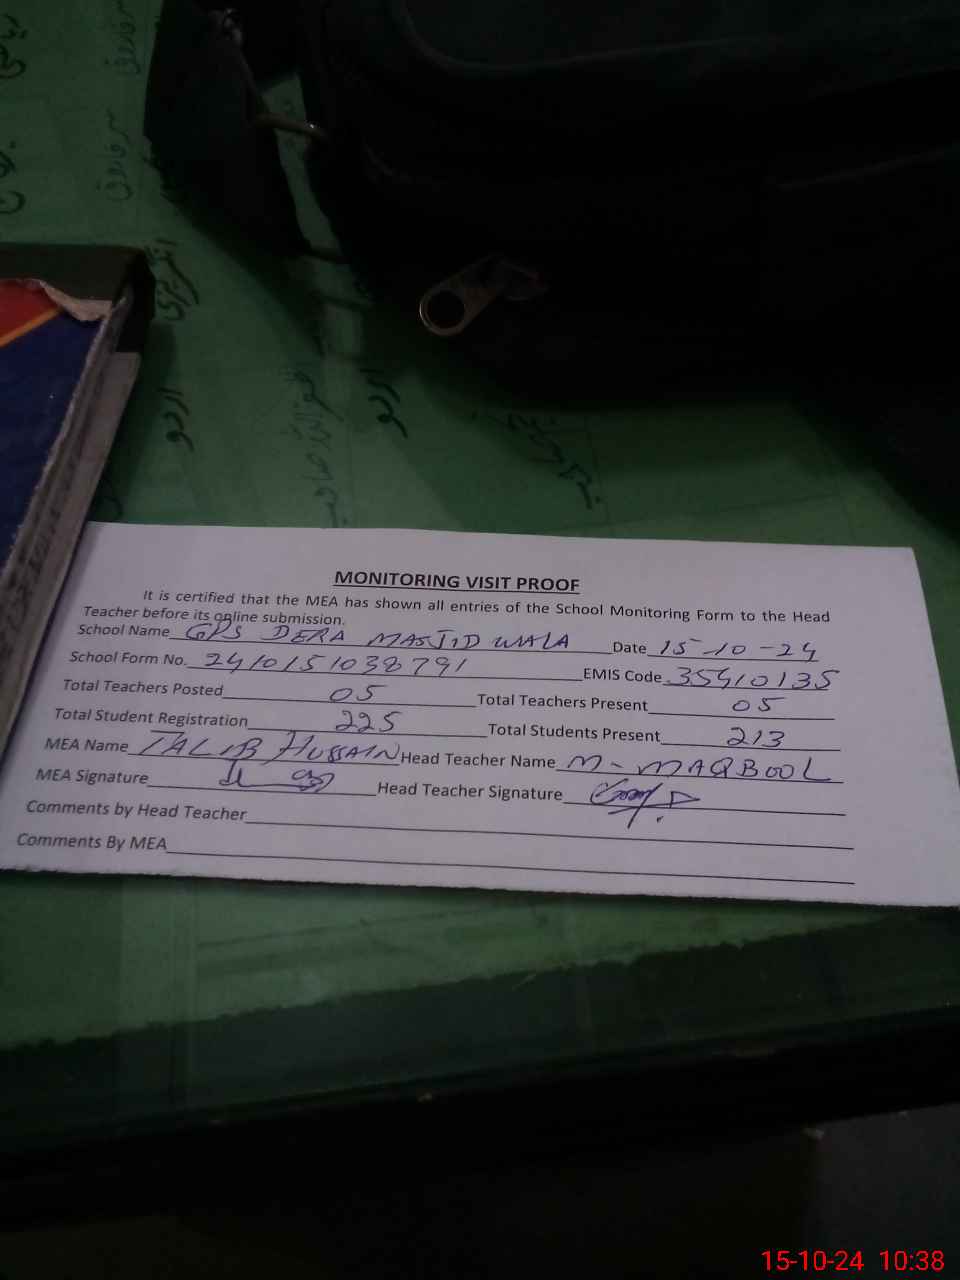 رياضی
سر فاروق
سر فاروق
انگریزی
اردو
اردو
MONITORING VISIT PROOF
It is certified that the MEA has shown all entries of the School Monitoring Form to the Head
Teacher before its online submission.
School Name GPS DERA MASJID WALA Date 15-10-24
School Form No. 2410151038791 EMIS Code 35410135
Total Teachers Posted 05 Total Teachers Present 05
Total Student Registration 225 Total Students Present 213
MEA Name TALIB HUSSAIN Head Teacher Name M-MAQBOOL
MEA Signature Head Teacher Signature
Comments by Head Teacher
Comments By MEA
15-10-24 10:38